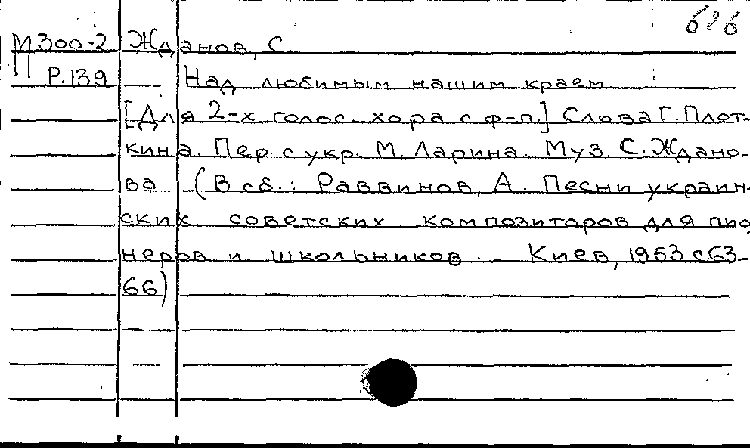 биб
М300-2 Жданов, С.
Р.139 Над любимым нашим краем
[Для 2-х голос. хора с ф-п.] Слова Г. Плот-
кина. Пер с укр. М. Ларина. Муз С. Ждано-
ва (В сб.: Раввинов, А. Песни украин-
ских советских композиторов для пио
неров и школьников. – Киев, 1953 с63-
66)